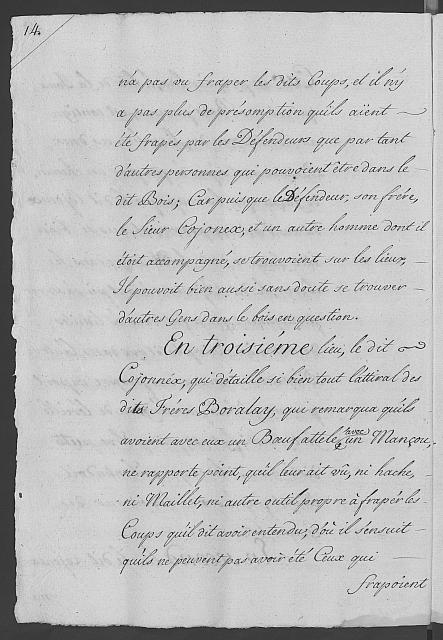 14.
n'a pas vu fraper les dits Coups, et il n'y
a pas plus de présomption qu'ils aïent
été frapés par les Défendeurs que par tant
d'autres personnes qui pouvoient être dans le
dit Bois; Car puis que le Défendeur, son frére,
le Sieur Cojonex, et un autre homme dont il
étoit accompagné, se trouvoient sur les lieux,
Il pouvoit bien aussi sans doute se trouver
d'autres Gens dans le bois en question.
En troisiéme lieu, le dit
Cojonnéx, qui détaille si bien tout l'attiral des
dits Fréres Boralay, qui remarqua qu'ils
avoient avec eux un Bœuf attelé avec un Mançou,
ne rapporte point, qu'il leur ait vû, ni hache,
ni Maillet, ni autre outil propre à fraper les
Coups qu'il dit avoir entendu; d'où il s'ensuit
qu'ils ne peuvent pas avoir été Ceux qui
frapoient